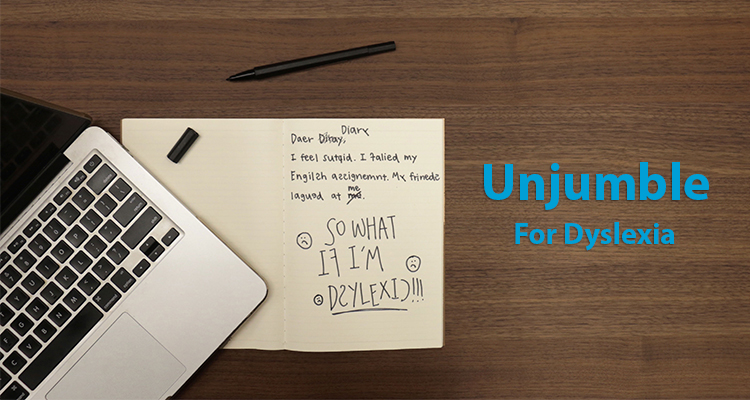 Diary
Daer Dihay,
I feel sutqid. I falied my
Engilsh aszignemnt. My frinedz
me
laguod at me.
SO WHAT
IF I'M
DSYLEXIC!!!
Unjumble
For Dyslexia